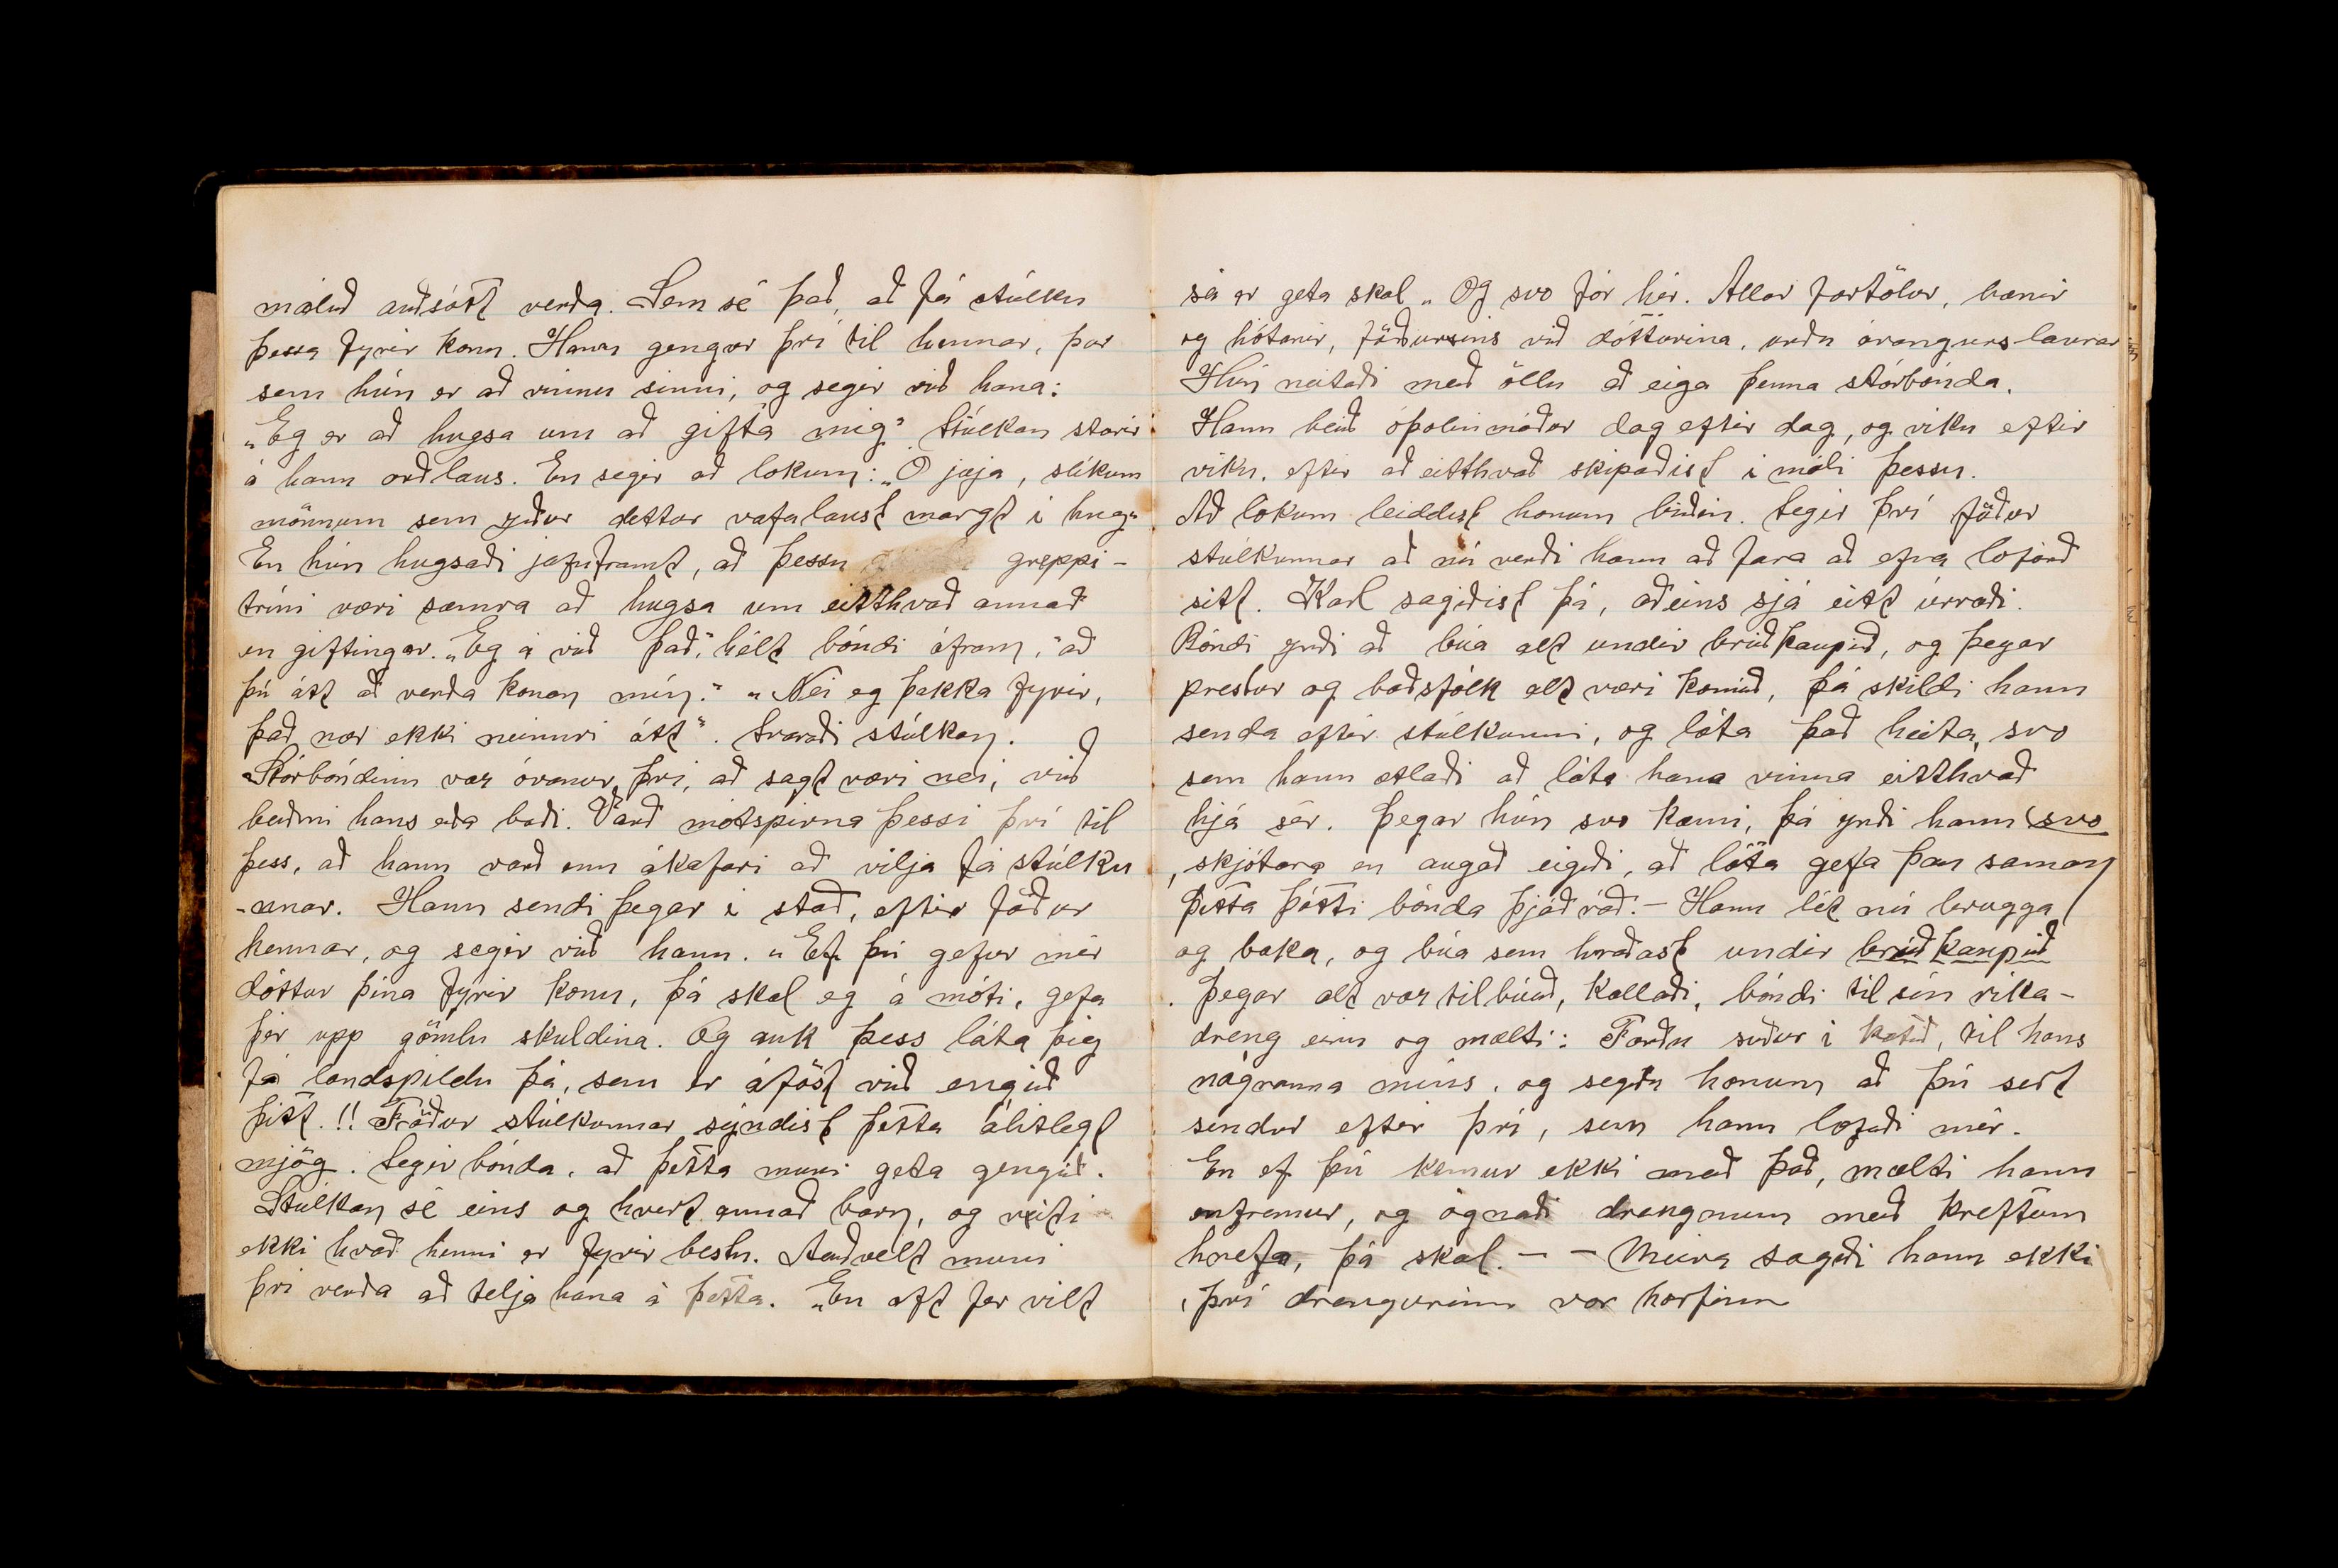 málið auðsótt verða. Sem sé það, að fá stúlku
þessa fyrir konu. Hann gengur því til hennar, þar
sem hún er að vinnu sinni, og segir við hana:
„Eg er að hugsa um að gifta mig". Stúlkan starir
á hann orðlaus. En segir að lokum: „O jæja, slíkum
mönnum sem yður dettur vafalaust margt í hug"
En hún hugsaði jafnframt, að þessu greppi-
tríni væri sæmra að hugsa um eitthvað annað
en giftingar. „Eg á við það," hélt bóndi áfram, "að
þú átt að verða konan mín." „Nei eg þakka fyrir,
það nær ekki neinni átt". Svaraði stúlkan.
Stórbóndinn var óvanur því, að sagt væri nei, við
beiðni hans eða boði. Varð mótspirna þessi því til
þess, að hann varð enn ákafari að vilja fá stúlku
-unar. Hann sendi þegar í stað, eftir föður
hennar, og segir við hann. „Ef þú gefur mér
dóttur þína fyrir konu, þá skal eg á móti, gefa
þér upp gömlu skuldina. Og auk þess láta þig
fá landspildu þá, sem er áföst við engið
þitt.!! Föður stúlkunnar sýndist þetta álitlegt
mjög. Segir bónda, að þetta muni geta gengið.
Stúlkan sé eins og hvert annað barn, og viti
ekki hvað henni er fyrir bestu. Auðvelt muni
því verða að telja hana á þetta. „En oft fer vilt
sá er geta skal„ Og svo fór hér. Allar fortölur, bænir
og hótanir, föðursins við dótturina, urðu árangurs-lausar
Hún neitaði með öllu að eiga þenna stórbónda.
Hann beið óþolinmóður dag eftir dag, og viku eftir
viku, eftir að eitthvað skipaðist í máli þessu.
Að lokum leiddist honum biðin. Segir því föður
stúlkunnar að nú verði hann að fara að efna loforð
sitt. Karl sagðist þá, aðeins sjá eitt úrræði.
Bóndi yrði að búa alt undir brúðkaupið, og þegar
prestur og boðsfólk alt væri komið, þá skildi hann
senda eftir stúlkunni, og láta það heita, svo
sem hann ætlaði að láta hana vinna eitthvað
hjá sér. Þegar hún svo kæmi, þá yrði hann svo
, skjótara en augað eigði, að láta gefa þau saman
Þetta þótti bónda þjóðráð.- Hann lét nú brugga
og baka, og búa sem hraðast undir brúðkaupið
. Þegar alt var tilbúið, kallaði, bóndi til sín víka-
dreng einn og mælti: Farðu suður í kotið, til hans
nágranna míns, og segðu honum að þú sert
sendur eftir því, sem hann lofaði mér.
En ef þú kemur ekki með það, mælti hann
enfremur, og ógnaði drengnum með kreftum
hnefa, þá skal. - - Meira sagði hann ekki
, því drengurinn var horfinn